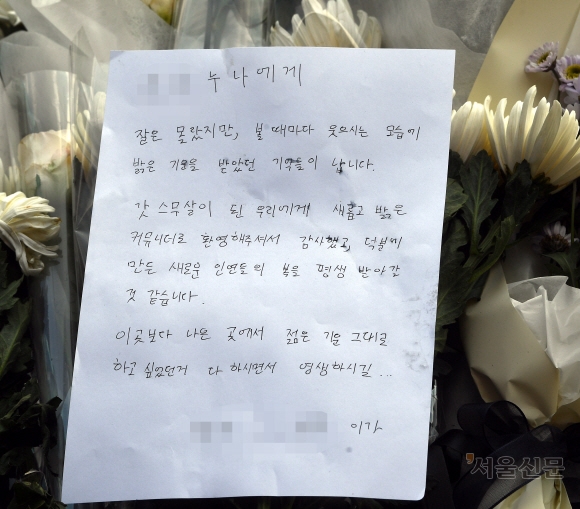 누나에게
잘은 몰랐지만, 볼 때마다 웃으시는 모습에
밝은 기운을 받았던 기억들이 납니다.
갓 스무살이 된 우리에게 새롭고 밝은
커뮤니티로 환영해주셔서 감사했고, 덕분에
만든 새로운 인연들의 복을 평생 받아갈
것 같습니다.
이곳보다 나은 곳에서 젊은 기운 그대로
하고 싶었던거 다 하시면서 영생하시길...
이가
서울신문